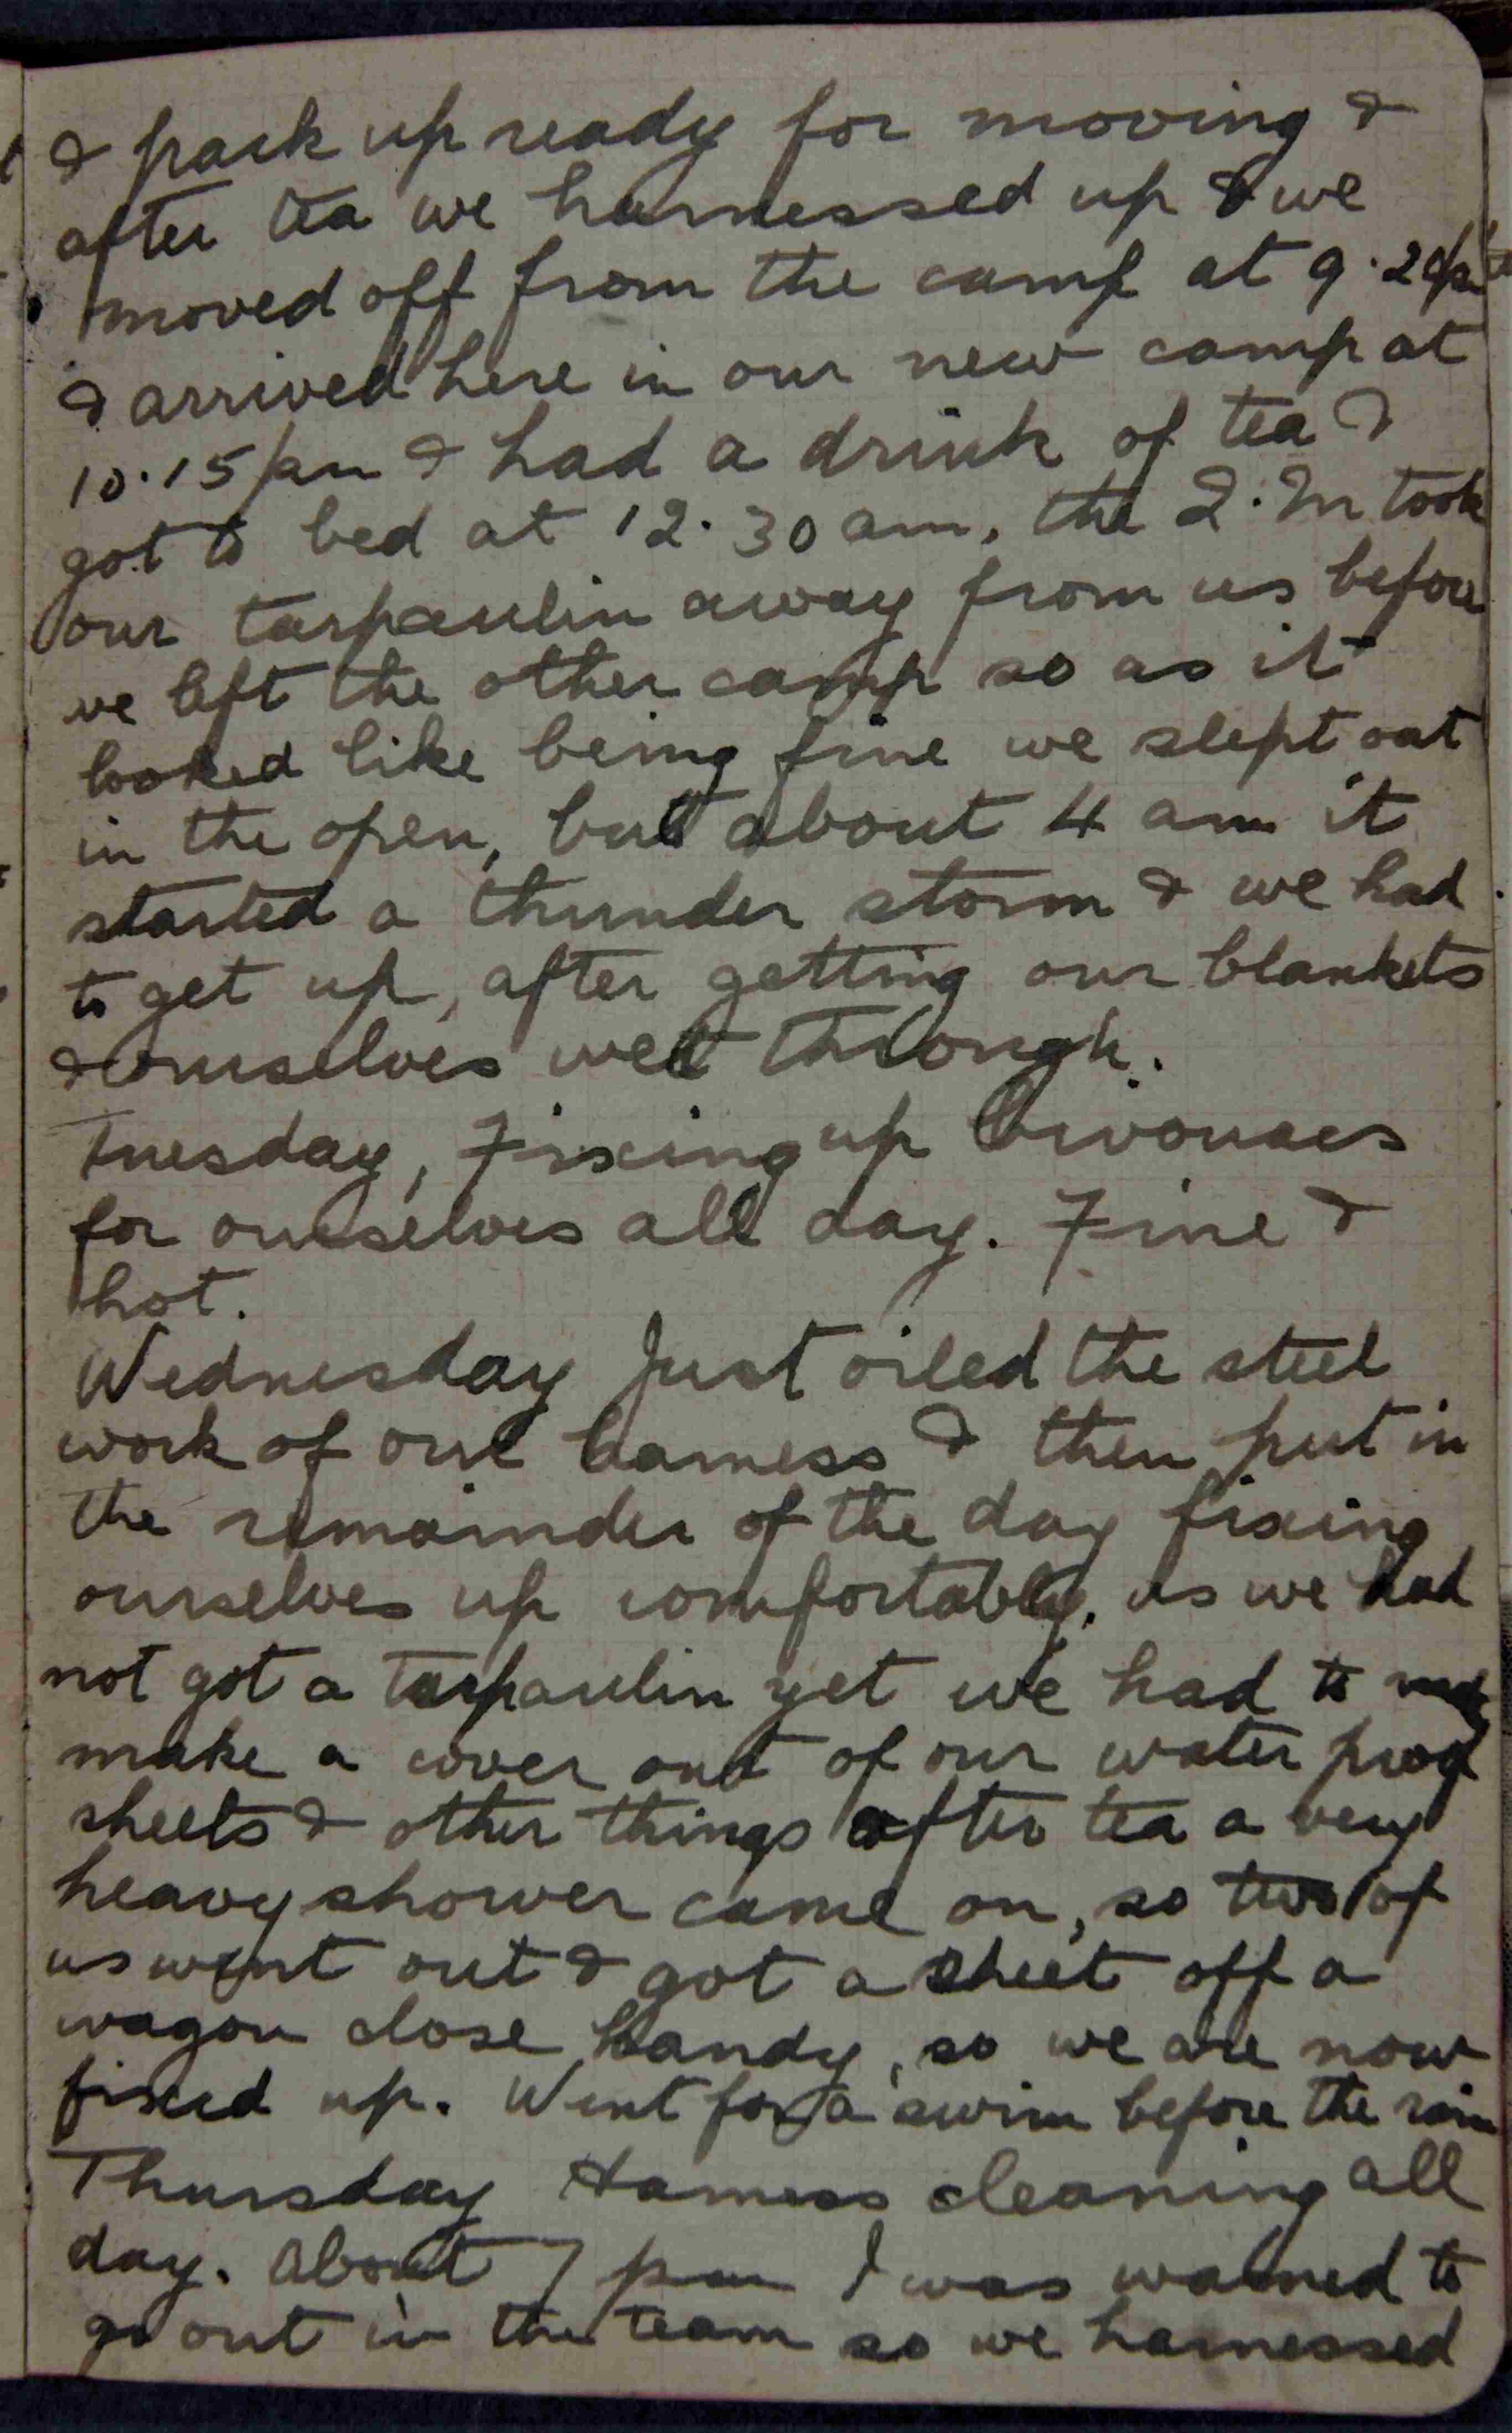 & pack up ready for moving &
after tea we harnessed up & we
moved off from the camp at 9.20pm
& arrived here in our new camp at
10.15pm & had a drink of tea &
got to bed at 12.30 am, the Q.M took
our tarpaulin away from us before
we left the other camp so as it
looked like being fine we slept out
in the open, but about 4 am it
started a thunder storm & we had
to get up, after getting our blankets
& ourselves wet through.
Tuesday, Fixing up bivouacs
for ourselves all day. Fine &
hot.
Wednesday Just oiled the steel
work of our harness & then put in
the remainder of the day fixing
ourselves up comfortably. As we had
not got a tarpaulin yet we had to
make a cover out of our water proof
sheets & other things after tea a very
heavy shower came on, so two of
us went out & got a sheet off a
wagon close handy, so we are now
fixed up. Went for a swim before the rain
Thursday Harness cleaning all
day. About 7 pm I was warned to
go out in the team so we harnessed